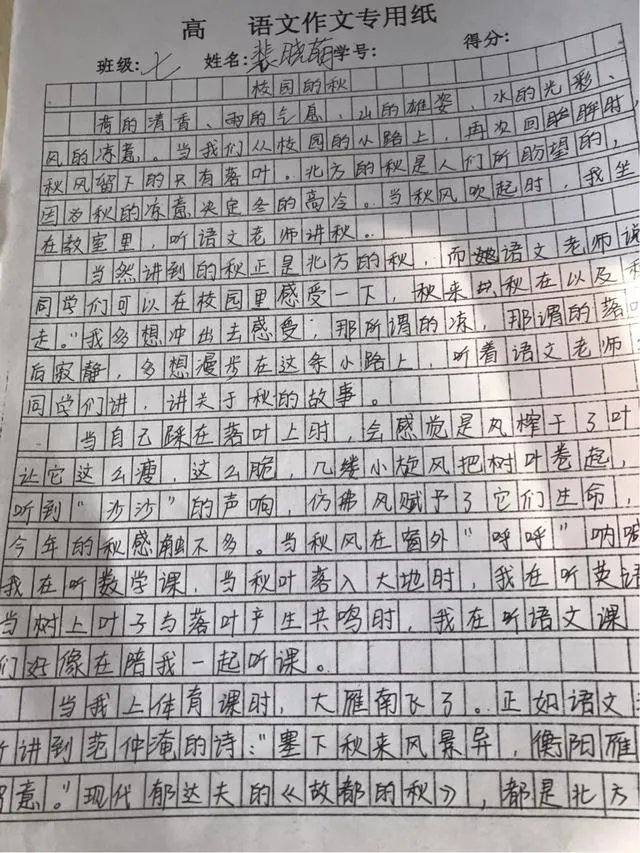 高 语文作文专用纸
班级:七 姓名:裴晓萌学号: 得分:
校园的秋
荷的清香、雨的气息、山的雄姿、水的光彩、
风的凉意。当我们从校园的小路上,再次回眸时,
秋风留下的只有落叶。北方的秋是人们所盼望的,
因为秋的凉意决定冬的高冷。当秋风吹起时,我坐
在教室里,听语文老师讲秋。
当然讲到的秋正是北方的秋,而语文老师说
同学们可以在校园里感受一下,秋来秋在以及秋
走。”我多想冲出去感受,那所谓的凉,那谓的落叶
后寂静,多想漫步在这条小路上,听着语文老师
同学们讲,讲关于秋的故事。
当自己踩在落叶上时,会感觉是风榨干了叶
让它这么瘦,这么脆,几缕小旋风把树叶卷起,
听到“沙沙”的声响,仿佛风赋予了它们生命,
今年的秋感触不多。当秋风在窗外“呼呼”呐喊
我在听数学课,当秋叶落入大地时,我在听英语
当树上叶子与落叶产生共鸣时,我在听语文课
们好像在陪我一起听课。
当我上体育课时,大雁南飞了。正如语文
讲到范仲淹的诗:“塞下秋来风景异,衡阳雁
留意。”现代郁达夫的《故都的秋》,都是北方